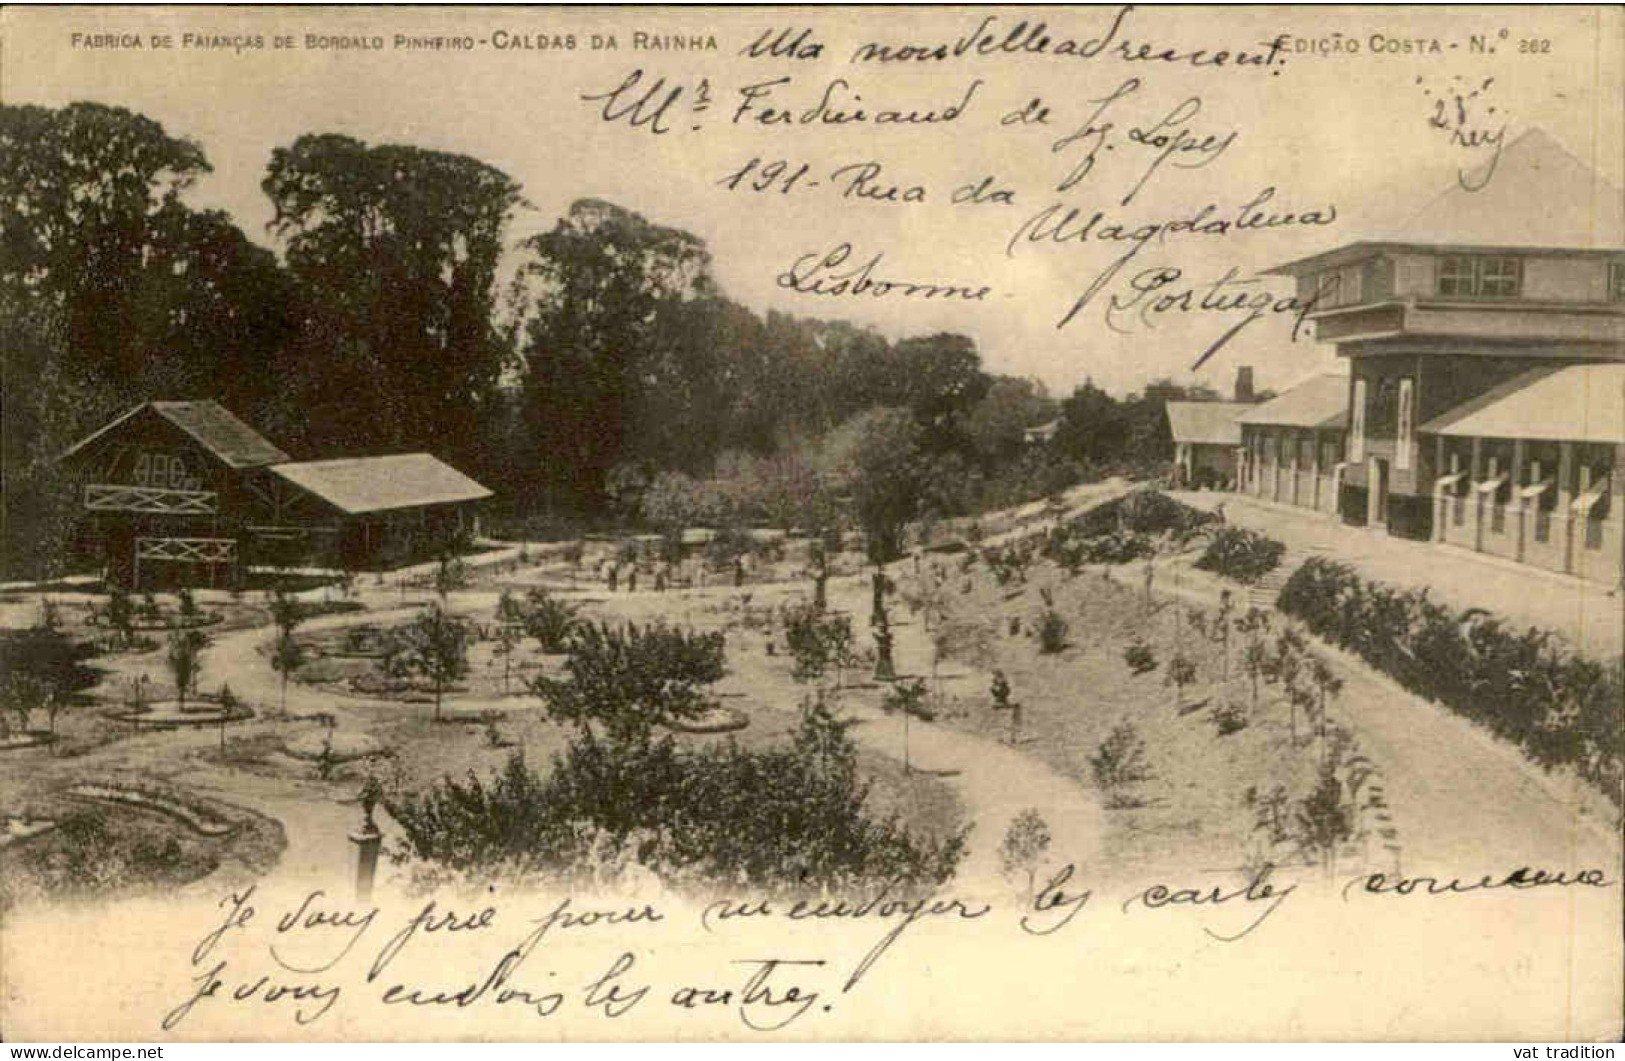 FABRICA DE FAIANÇAS DE BORDALO PINHEIRO - CALDAS DA RAINHA
EDIÇÃO COSTA - N.º 262
Ma nouvelle adressent.
Mr. Ferdinand de Lopes
191 - Rua da Magdalena
Lisbonne - Portugal
ABC
Je vous prie pour m'envoyer les cartes comme
je vous envois les autres.
vat tradition